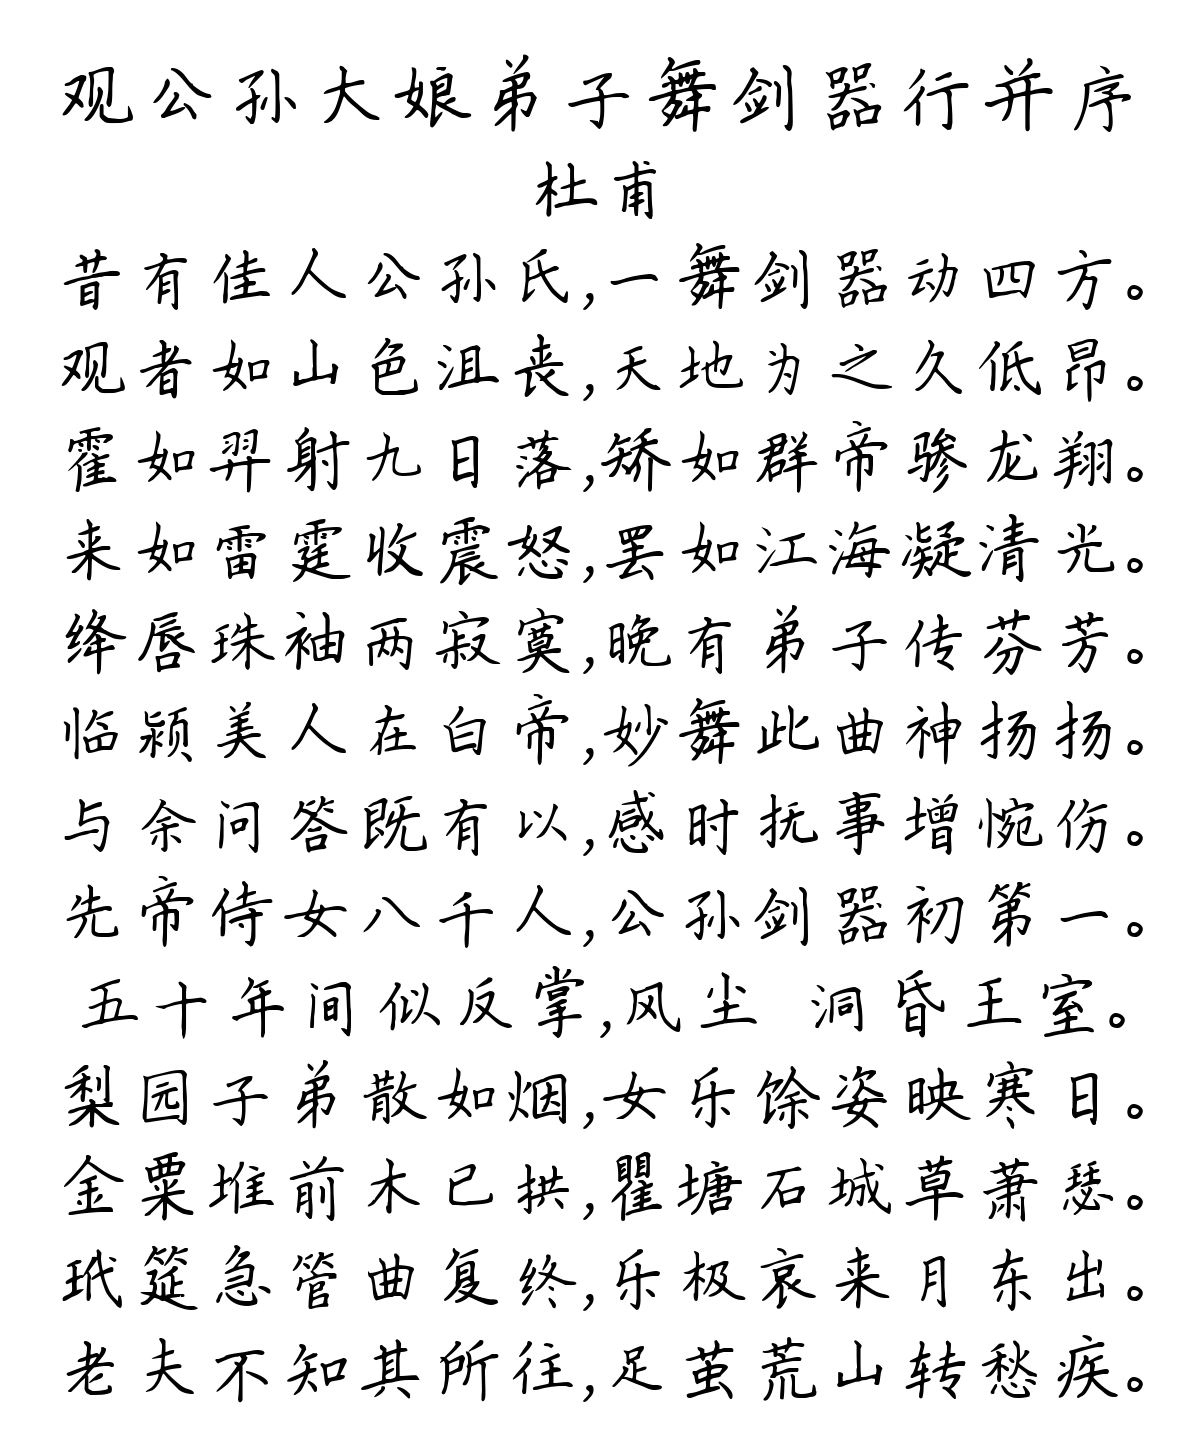 观公孙大娘弟子舞剑器行并序
杜甫
昔有佳人公孙氏,一舞剑器动四方。
观者如山色沮丧,天地为之久低昂。
霍如羿射九日落,矫如群帝骖龙翔。
来如雷霆收震怒,罢如江海凝清光。
绛唇珠袖两寂寞,晚有弟子传芬芳。
临颍美人在白帝,妙舞此曲神扬扬。
与余问答既有以,感时抚事增惋伤。
先帝侍女八千人,公孙剑器初第一。
五十年间似反掌,风尘 洞昏王室。
梨园子弟散如烟,女乐馀姿映寒日。
金粟堆前木已拱,瞿塘石城草萧瑟。
玳筵急管曲复终,乐极哀来月东出。
老夫不知其所往,足茧荒山转愁疾。